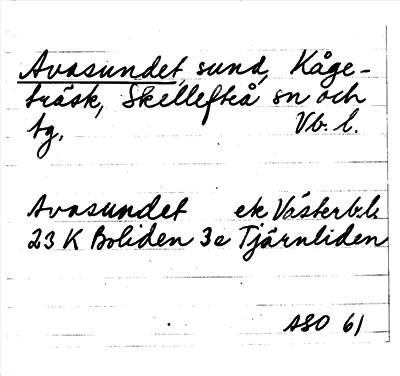 Avasundet, sund, Kåge-
träsk, Skellefteå sn och
tg. Vb. l.
Avasundet ek Västerb.l.
23 K Boliden 3e Tjärnliden
ASO 61